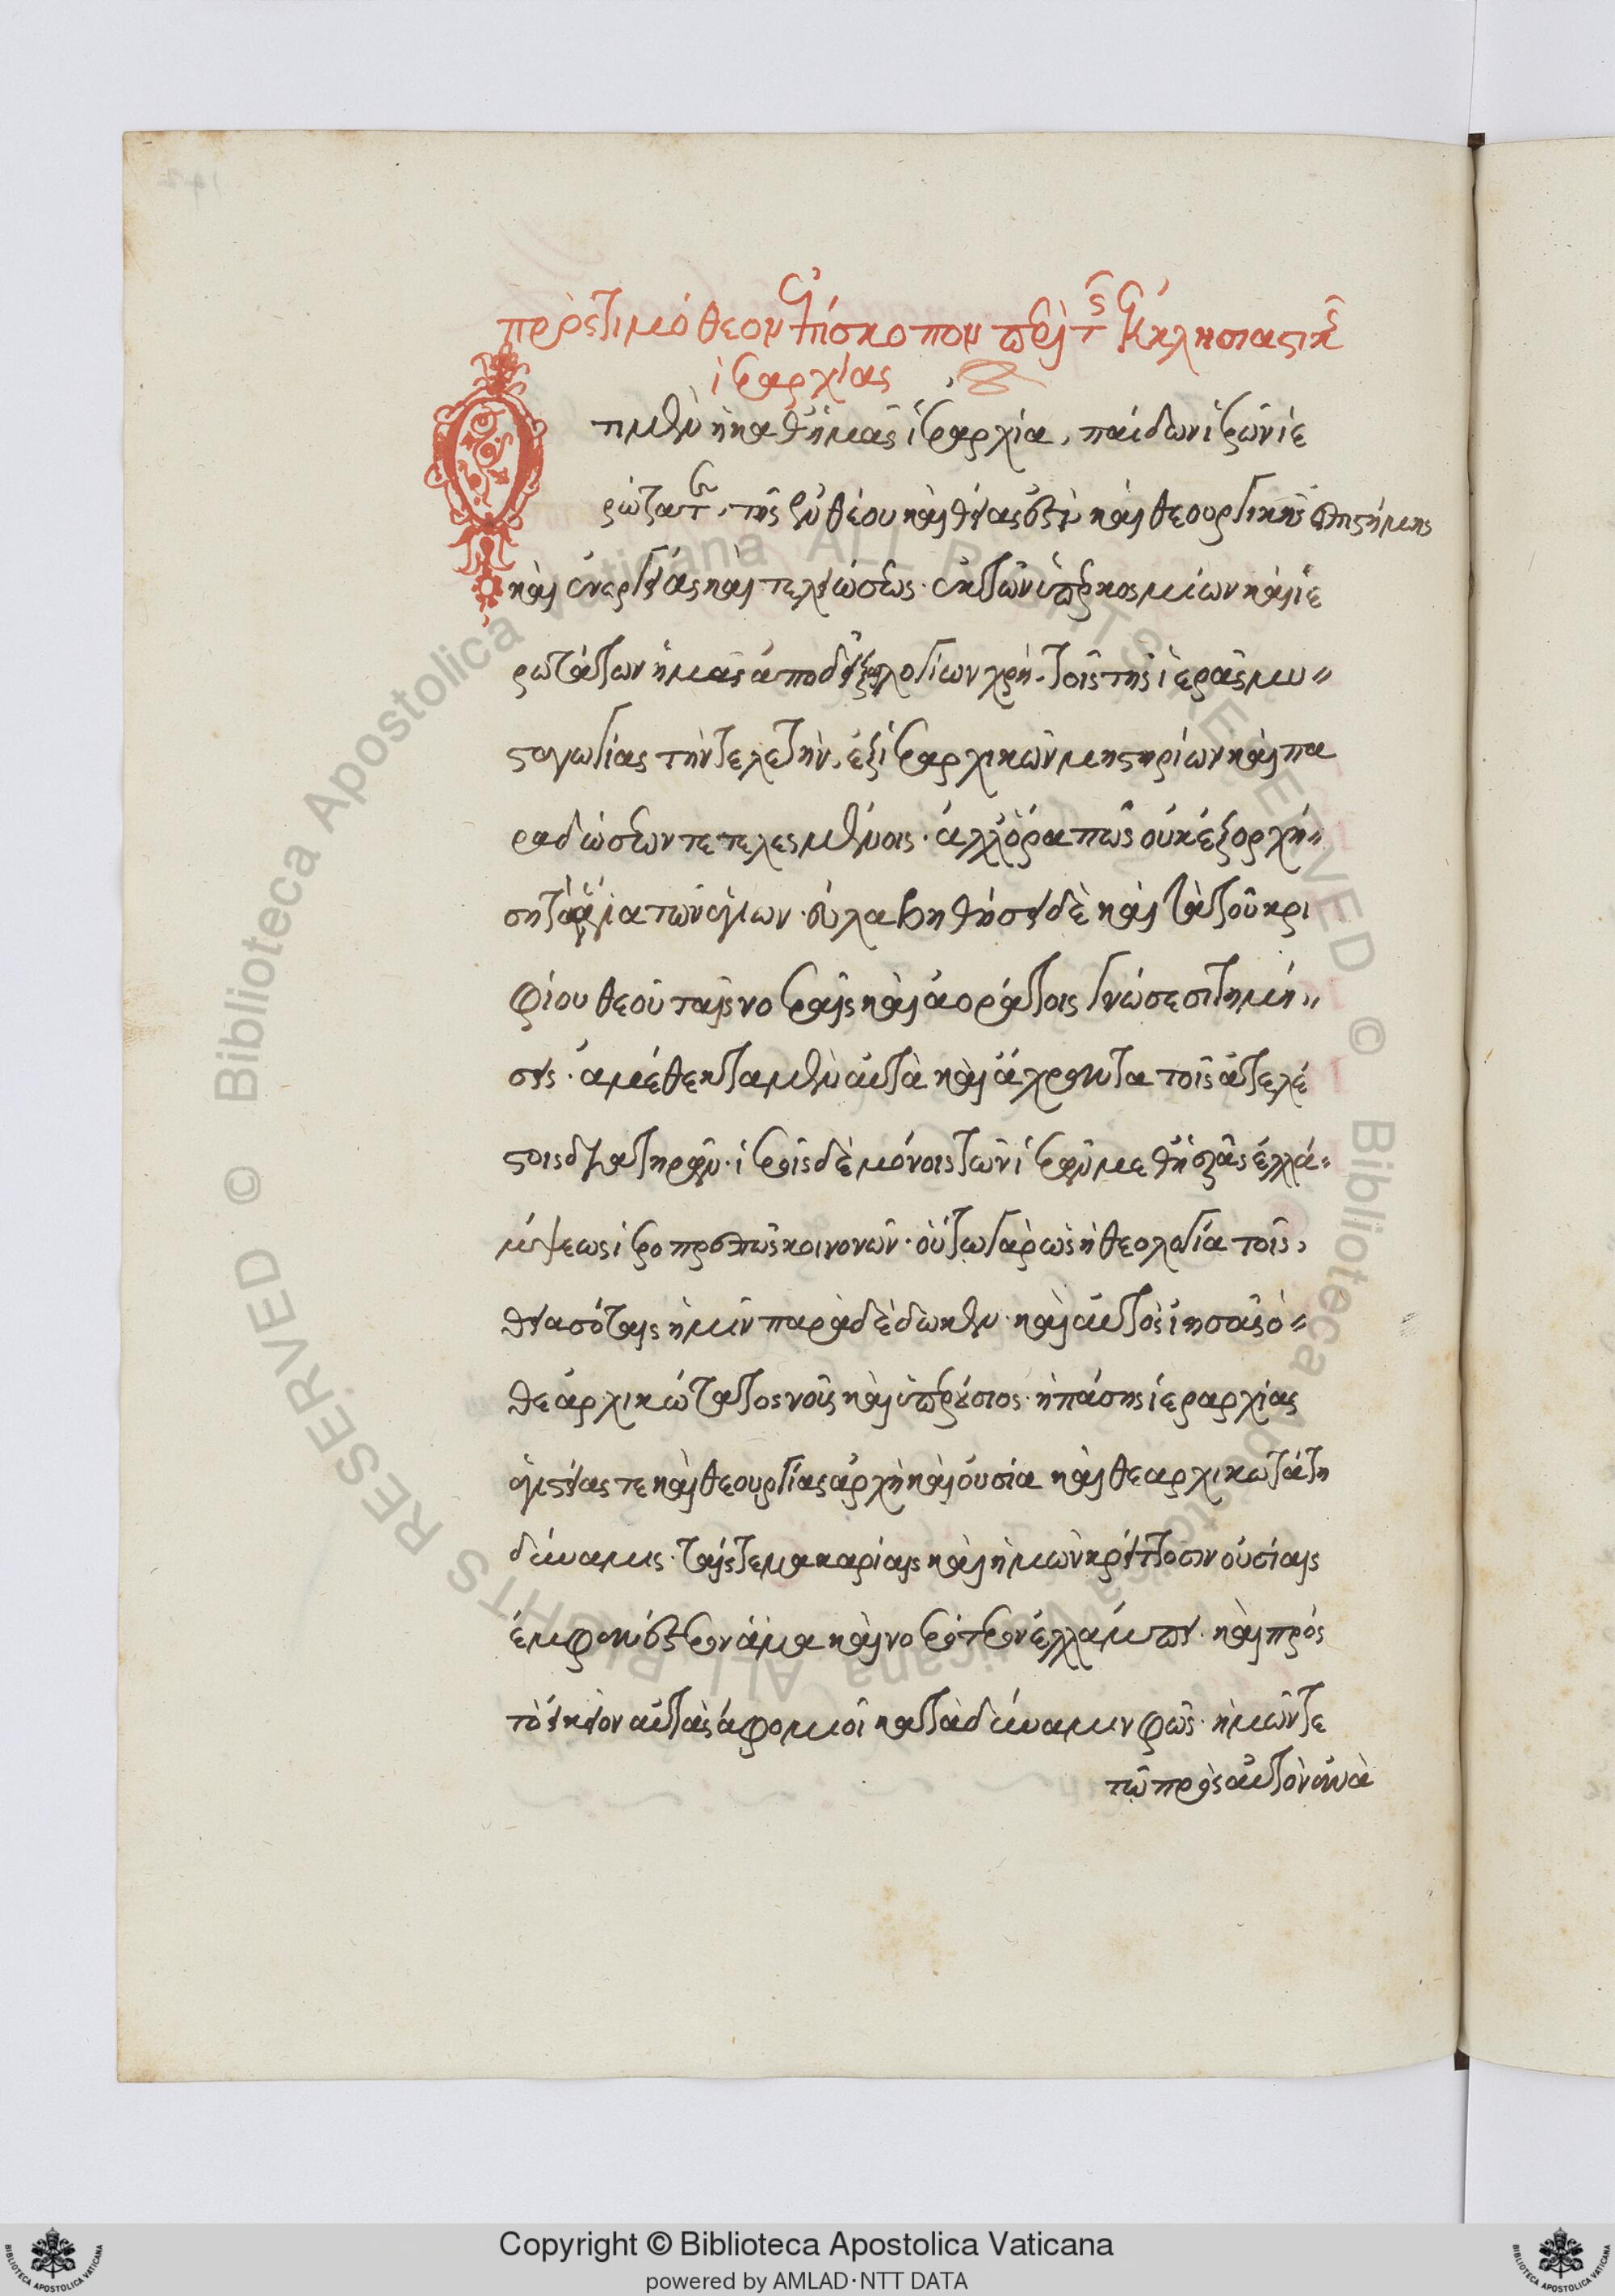 πρὸς τιμόθεον ἐπίσκοπον περὶ τῆς ἐκκλησιαστικῆς
ἱεραρχίας
Ὅτι μὲν ἡ καθ' ἡμᾶς ἱεραρχία, παίδων ἱερῶν ἱε
ρώτατε, τῆς ἐνθέου καὶ θείας ἐστὶ καὶ θεουργικῆς ἐπιστήμης
καὶ ἐνεργείας καὶ τελειώσεως· ἐκ τῶν ὑπερκοσμίων καὶ ἱε
ρωτάτων ἡμᾶς ἀποδεῖξαι λογίων χρὴ. τοῖς τῆς ἱερᾶς μυ"
σταγωγίας τὴν τελετὴν, ἐξ ἱεραρχικῶν μηστηρίων καὶ πα
ραδώσεων τετελεσμένοις· ἀλλ' ὅρα πῶς οὐκ ἐξορχή"
ση τὰ ἅγια τῶν ἁγίων· εὐλαβηθήσει δὲ καὶ τὰ τοῦ κρι
φίου θεοῦ ταῖς νοεραῖς καὶ ἀοράτοις γνώσεσι τημή"
σεις· ἀμέθεκτα μὲν αὐτὰ καὶ ἄχραντα τοῖς ἀτελέ
στοις διατηρῶν· ἱεροῖς δὲ μόνοις τῶν ἱερῶν μεθ' ἱερᾶς ἐλλά"
μψεως ἱεροπρεπῶς κοινονῶν· οὕτω γὰρ ὡς ἡ θεολογία τοῖς,
θειασόταις ἡμῖν παραδέδωκεν· καὶ αὐτὸς ἰησοῦς ὁ"
θεαρχικώτατος νοῦς καὶ ὑπερούσιος· ἡ πάσης ἱεραρχίας
ἁγιστείας τε καὶ θεουργίας ἀρχὴ καὶ οὐσία καὶ θεαρχικωτάτη
δύναμις· ταῖς τε μακαρίαις καὶ ἡμῶν κρείττοσιν οὐσίαις
ἐμφανέστερον ἅμα καὶ νοερότερον ἐλλάμπει· καὶ πρὸς
τὸ εἰκεῖον αὐτὰς ἀφομιοῖ κατὰ δύναμιν φῶς· ἡμῶν τε
τῶ πρὸς αὐτὸν ἀνὰ
Copyright © Biblioteca Apostolica Vaticana
powered by AMLAD·NTT DATA
© Biblioteca Apostolica Vaticana ALL RIGHTS RESERVED © Biblioteca Apostolica Vaticana ALL RIGHTS RESERVED
BIBLIOTECA APOSTOLICA VATICANA
BIBLIOTECA APOSTOLICA VATICANA